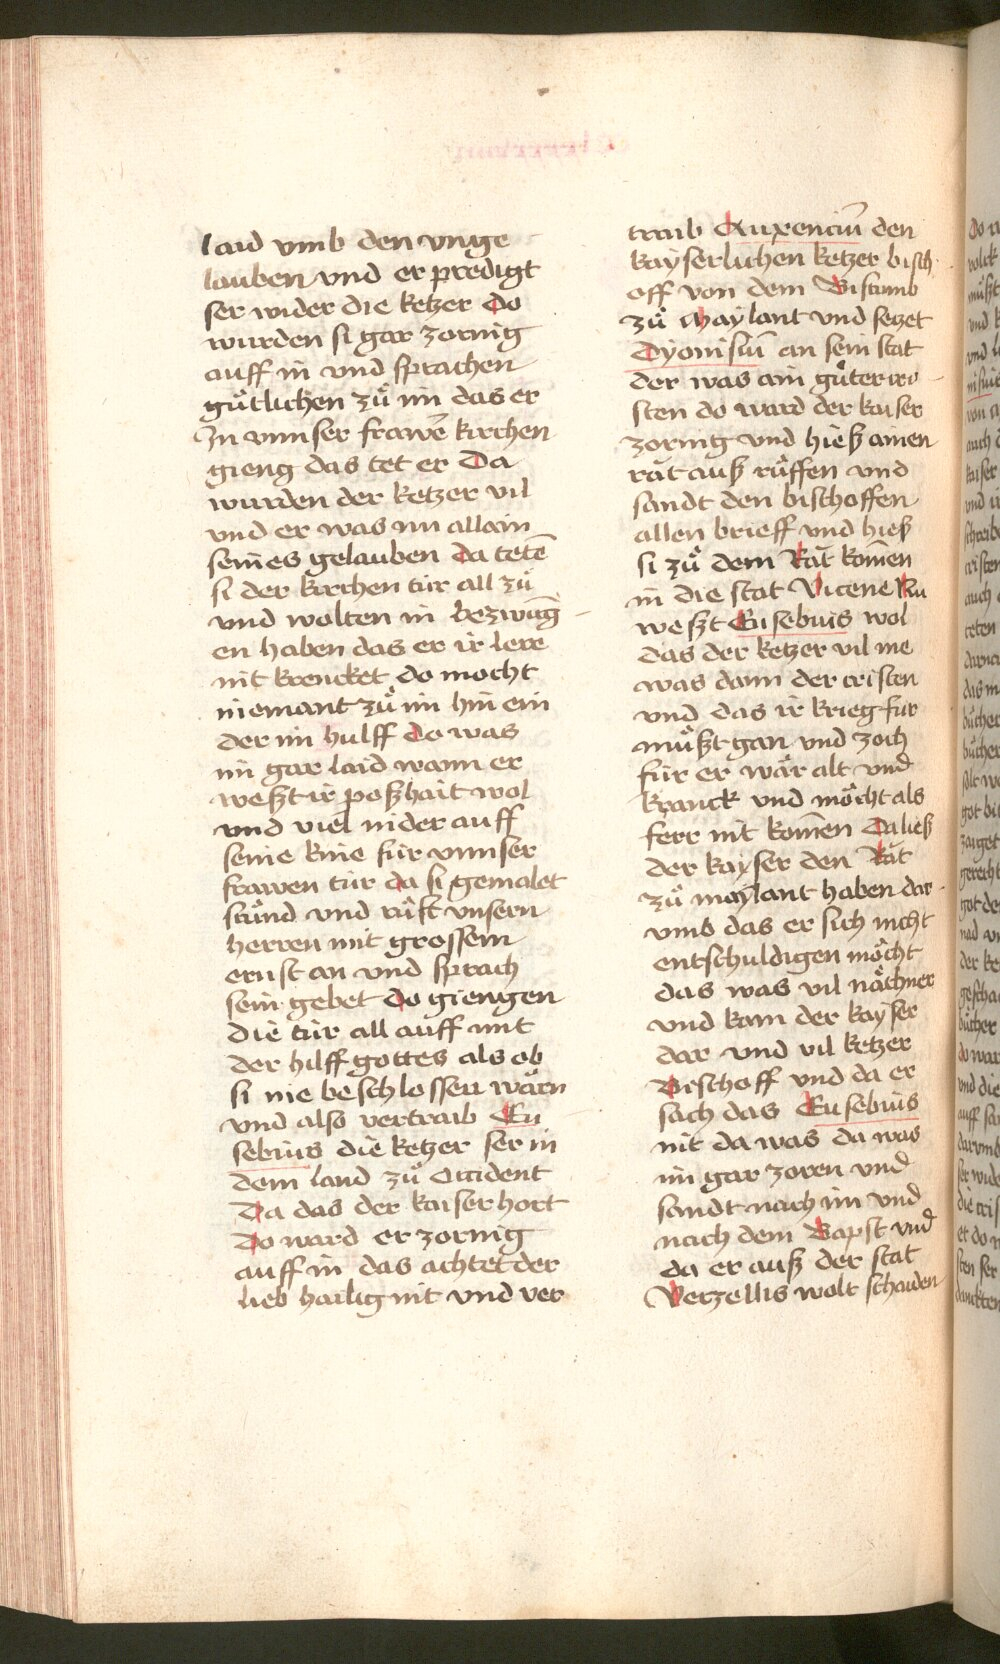 laid vmb den vnge
lauben vnd er predigt
ser wider die ketzer Do
wurden si gar zornig
auff in vnd sprachen
gůtlichen zů im das er
In vnnser frawē kirchen
gieng das tet er Da
wurden der ketzer vil
vnd er was nu allain
seines gelauben Da tetē
si der kirchen tür all zů
vnd wolten in bezwūg
en haben das er ir lere
nit krencket do mocht
niemant zů im hin ein
der im hulff Do was
im gar laid wann er
weßt ir poßhait wol
vnd viel nider auff
seine knie für vnnser
frawen tür da si gemalet
stůnd vnd růft vnsern
herren mit grossem
ernst an vnd sprach
sein gebet do giengen
die tür all auff mit
der hilff gottes als ob
si nie beschlossen wärn
vnd also vertraib Eu
sebius die ketzer ser in
dem land zů Occident
Da das der kaiser hort
Do ward er zornig
auff in das achtet der
lieb hailig nit vnd ver
traib Auxenciū den
kayserlichen ketzer bisch
off von dem Bistumb
zů Maylant vnd setzet
Dyonisiū an sein stat
der was ain gůter cri
sten do ward der kaiser
zornig vnd hieß ainen
rat auß růffen vnd
sandt den bischoffen
allen brieff vnd hieß
si zů dem Rat komen
in die stat Vicene Nu
weßt Eusebius wol
das der ketzer vil me
was dann der cristen
vnd das ir krieg für
můßt gan vnd zoch
für er wär alt vnd
kranck vnd möcht als
ferr nit komen Da ließ
der kayser den Rat
zů maylant haben dar
vmb das er sich nicht
entschuldigen möcht
das was vil nächner
vnd kam der kayser
dar vnd vil ketzer
Bischoff vnd da er
sach das Eusebius
nit da was da was
im gar zoren vnd
sandt nach im vnd
nach dem Bapst vnd
da er auß der stat
Verzellis wolt schaiden